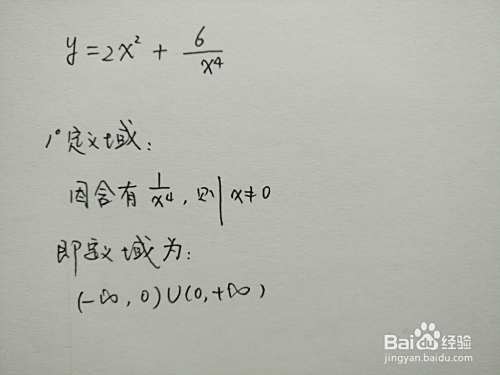 y = 2x² + 6/x⁴
1° 定义域：
因含有 1/x⁴，则 x≠0
即定义域为：
(-∞, 0)∪(0, +∞)
Baidu经验
jingyan.baidu.com